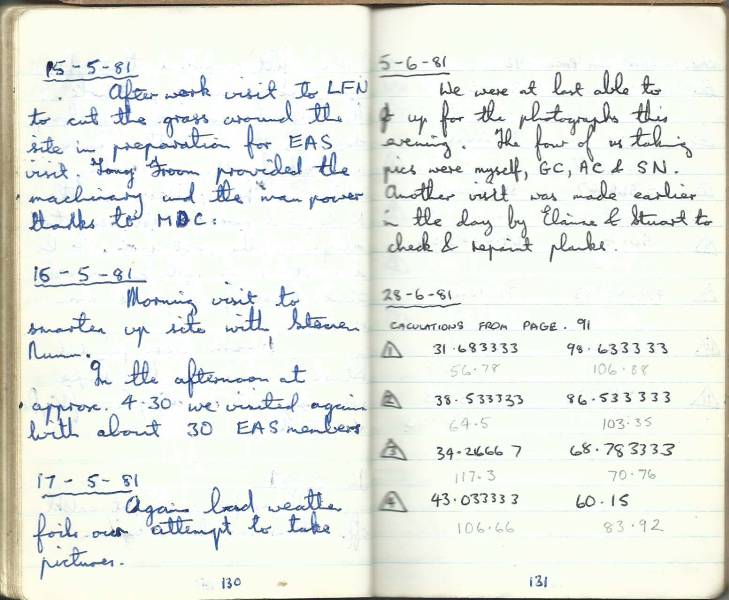 15-5-81
After work visit to LFN
to cut the grass around the
site in preparation for EAS
visit. Tony Froom provided the
machinary and the man power
thanks to MDC.
16-5-81
Morning visit to
smarten up site with Steven
Nunn.
In the afternoon at
approx. 4.30 we visited again
with about 30 EAS members
17-5-81
Again bad weather
foils our attempt to take
pictures.
130
5-6-81
We were at last able to
up for the photographs this
evening. The four of us taking
pics were myself, GC, AC & SN.
Another visit was made earlier
in the day by Elaine & Stuart to
check & repaint planks.
28-6-81
CACULATIONS FROM PAGE. 91
1 31.683333 98.633333
56.78 106.88
2 38.533333 86.533333
64.5 103.35
3 34.26667 68.783333
117.3 70.76
4 43.033333 60.15
106.66 83.92
131